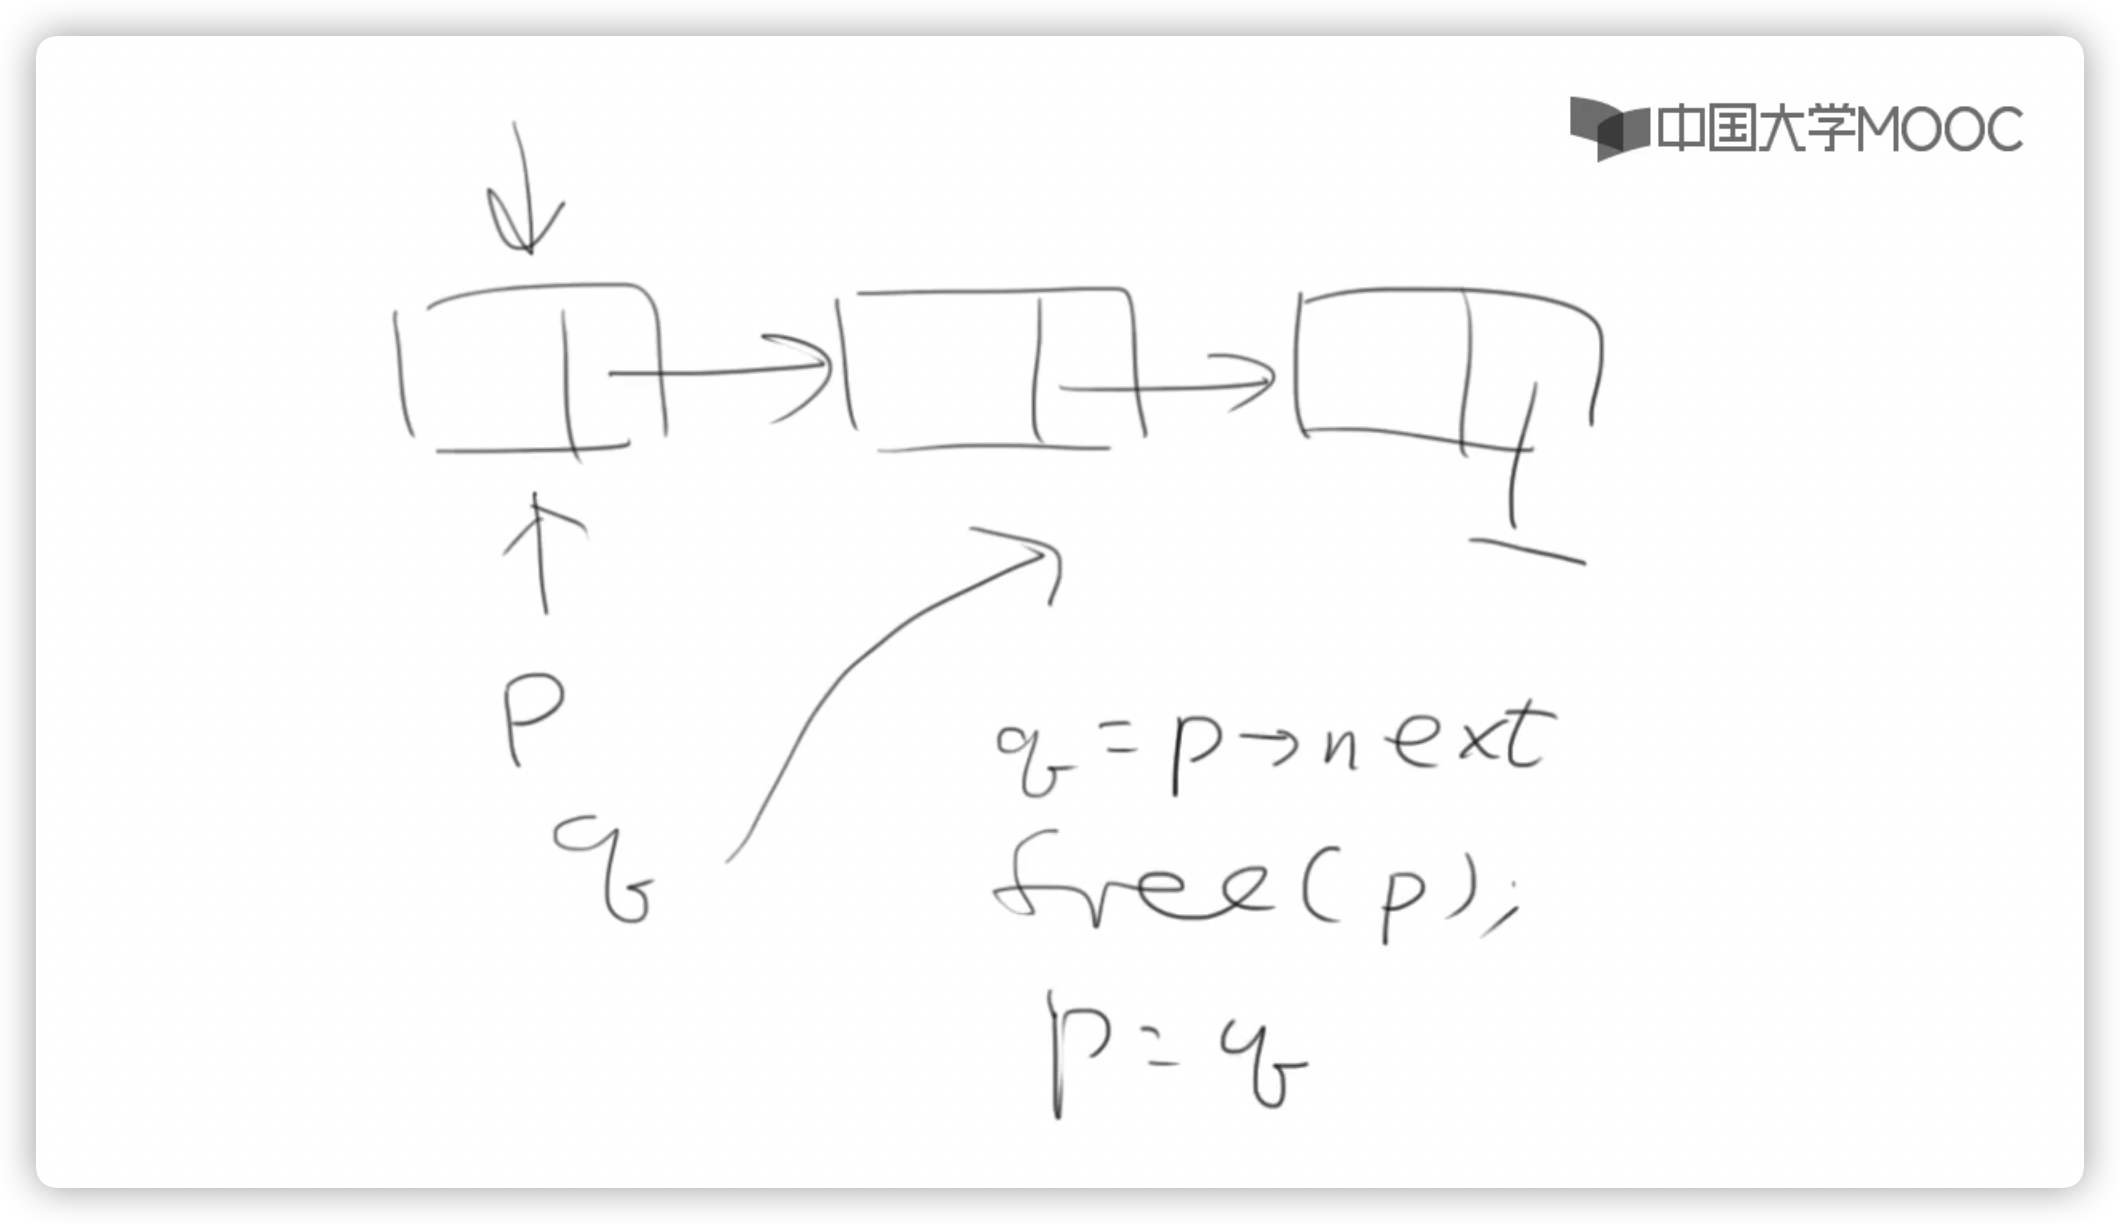 中国大学MOOC
p
q
q = p→next
free(p);
p = q